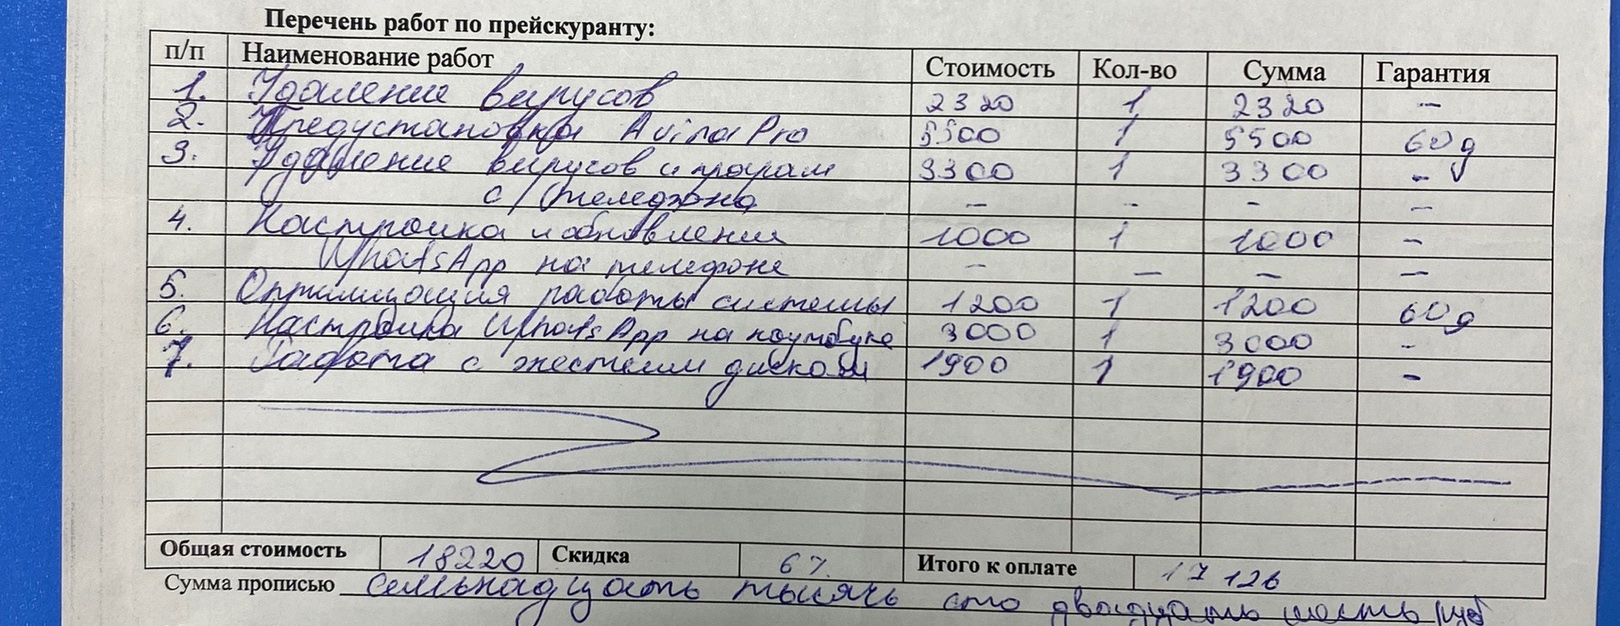 Перечень работ по прейскуранту:
п/п Наименование работ Стоимость Кол-во Сумма Гарантия
1. Удаление вирусов 2320 1 2320 –
2. Предустановка Avira Pro 5500 1 5500 60 д
3. Удаление вирусов и програм 3300 1 3300 –
с/телефона – – – –
4. Настройка и обновление 1000 1 1000 –
WhatsApp на телефоне – – – –
5. Оптимизация работы системы 1200 1 1200 60 д
6. Настройка WhatsApp на ноутбуке 3000 1 3000 –
7. Работа с жестким диском 1900 1 1900 –
Общая стоимость 18220 Скидка 6% Итого к оплате 17126
Сумма прописью семьнадцать тысячь сто двадцать шесть руб